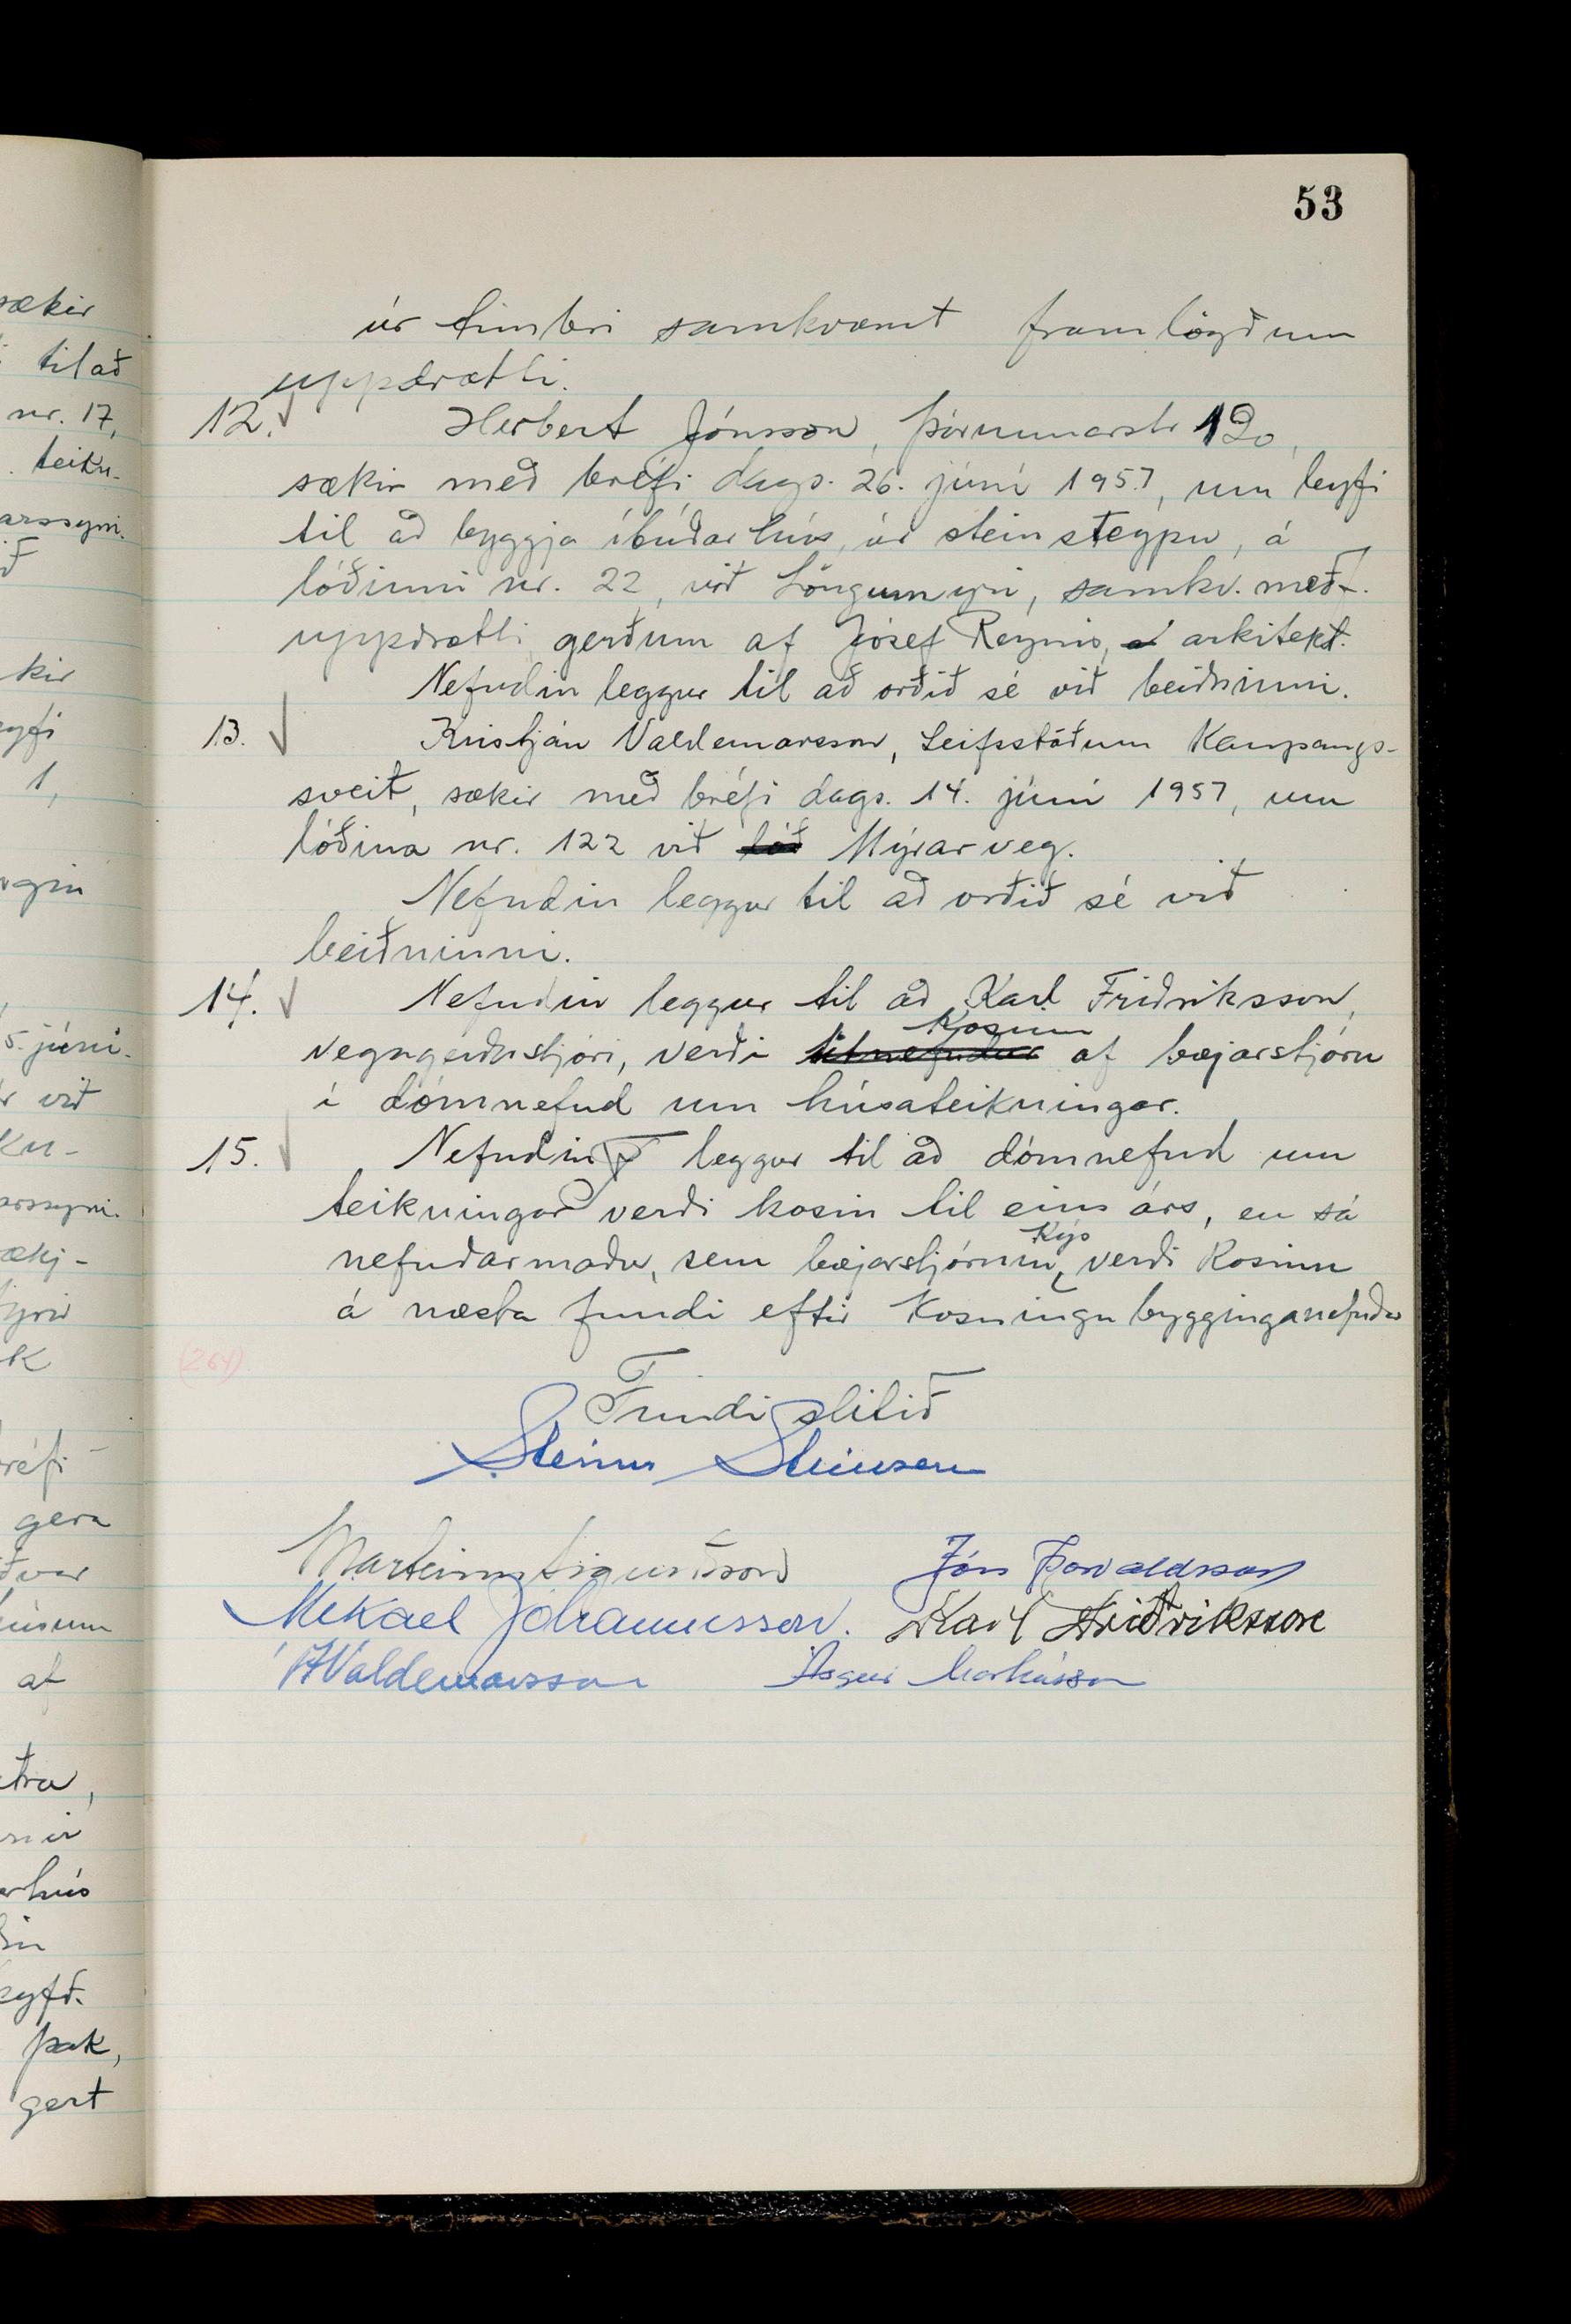 53
úr timbri samkvæmt framlögðum
uppdrætti.
12. Herbert Jónsson, Þórunnarstr 120,
sækir með bréfi dags. 26. júní 1957, um leyfi
til að byggja íbúðarhús, úr steinsteypu, á
lóðinni nr. 22, við Löngumýri, samkv. með-.
uppdrætti gerðum af Jósef Reynis, arkitekt.
Nefndin leggur til að orðið sé við beiðninni.
13. Kristján Valdemarsson, Leifsstöðum Kaupangs-
sveit, sækir með bréfi dags. 14. júní 1957, um
lóðina nr. 122 við lóð Mýrarveg.
Nefndin leggur til að orðið sé við
beiðninni.
14. Nefndin leggur til að Karl Friðriksson,
kosinn
vegagerðastjóri, verði tilnefndur af bæjarstjórn
í dómnefnd um húsateikningar.
15. Nefndin leggur til að dómnefnd um
teikningar verði kosin til eins árs, en sá
kýs
nefndarmaður, sem bæjarstjórnin verði kosinn
á næsta fundi eftir kosningu bygginganefndar
(264)
Fundi slitið
Steinn Steinsen
Marteinn Sigurðsson Jón Þorvaldsson
Mikael Jóhannesson. Karl Friðriksson
Valdemarsson Ásgeir Markússon
sækir
til að
nr. 17,
teikn-
arssyni.
kir
eyfi
1,
5. júní.
við
kn-
arssyni.
ækj-
fyrir
k
bréfi
gera
húsum
af
arhús
leyfð.
þak,
gert